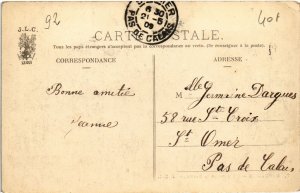 92
401
J.L.C.
6 30
21-5
09
PAS DE CALAIS
CARTE POSTALE
Tous les pays étrangers n'acceptent pas la correspondance au verso. (Se renseigner à la poste)
CORRESPONDANCE
ADRESSE
Melle Germaine Dargues
Bonne amitié
58 rue Ste Croix
Jeanne
St Omer
Pas de Calais